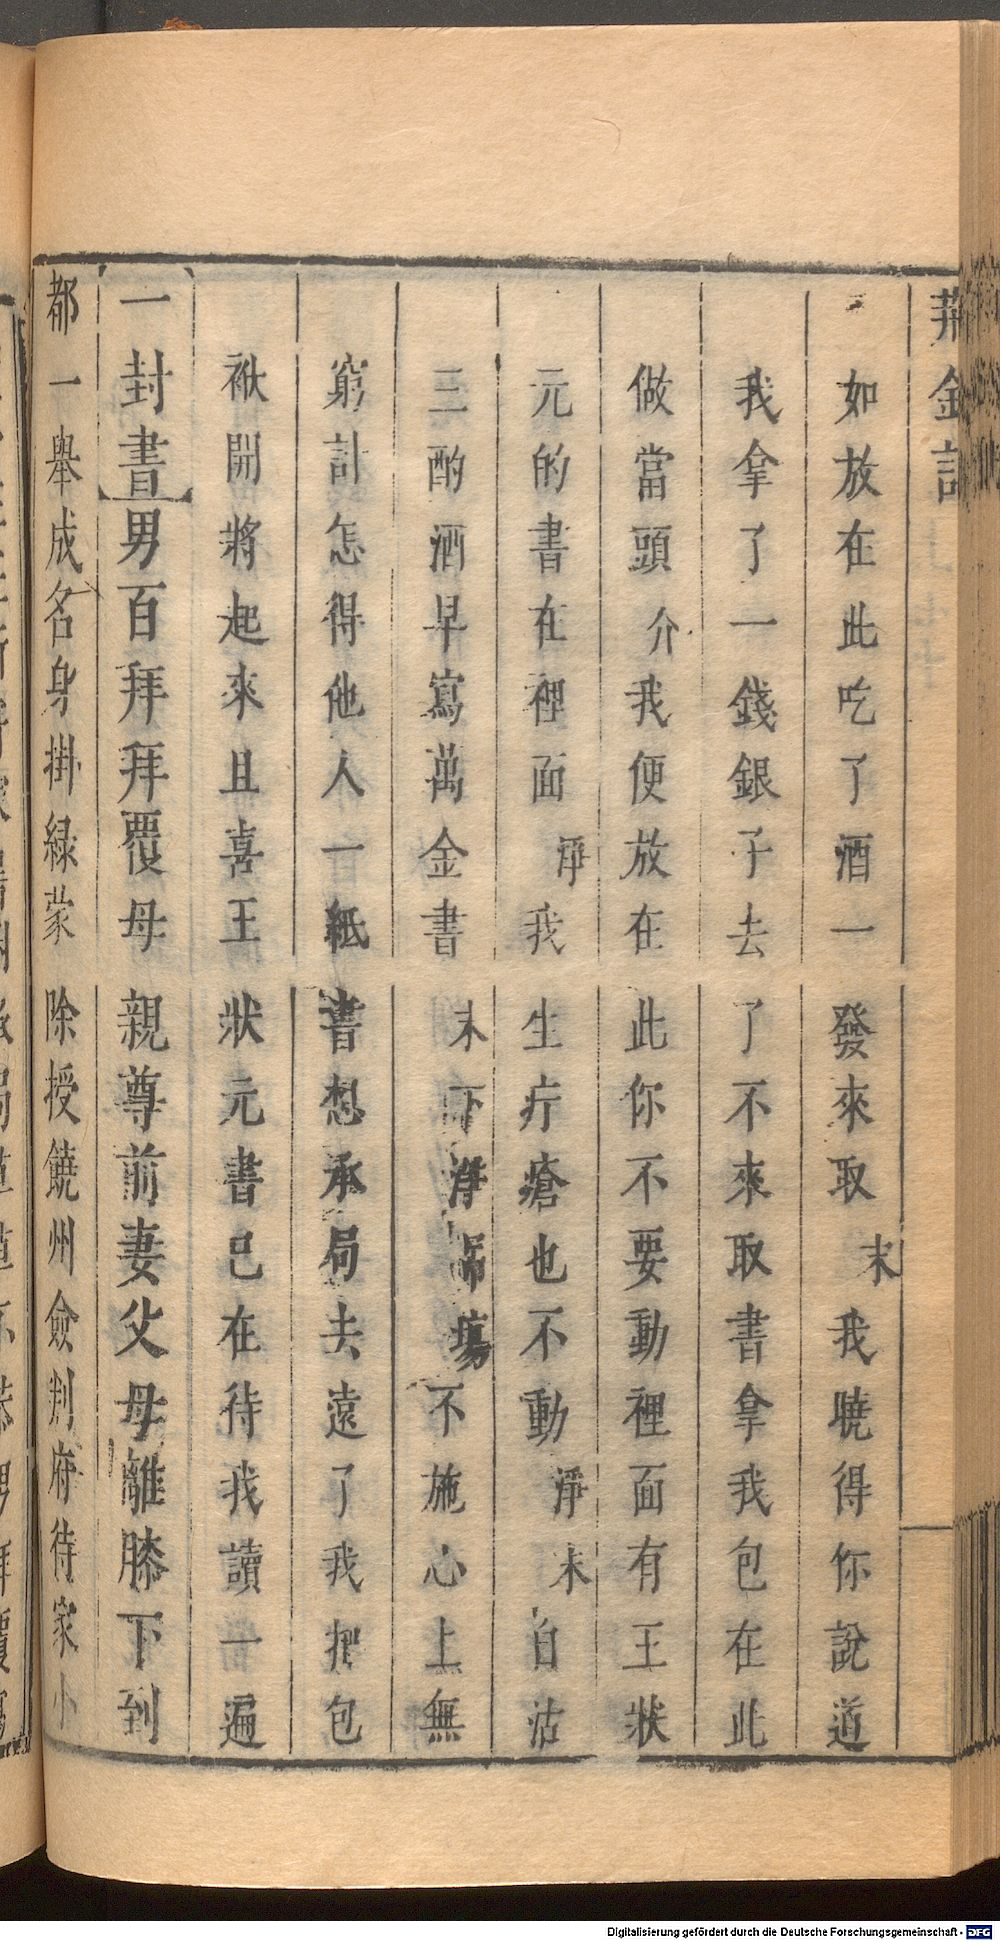 如放在此吃了酒一發來取末我曉得你說道
我拿了一錢銀子去了不來取書拿我包在此
做當頭介我便放在此你不要動裡面有王狀
元的書在裡面淨我生疔瘡也不動淨末白沽
三酌酒早寫萬金書末下淨吊場不施心上無
窮計怎得他人一紙書想承局去遠了我把包
袱開將起來且喜王狀元書已在待我讀一遍
一封書男百拜拜覆母親尊前妻父母離膝下到
都一舉成名身掛緑蒙除授饒州僉判府待家小
Digitalisierung gefördert durch die Deutsche Forschungsgemeinschaft - DFG